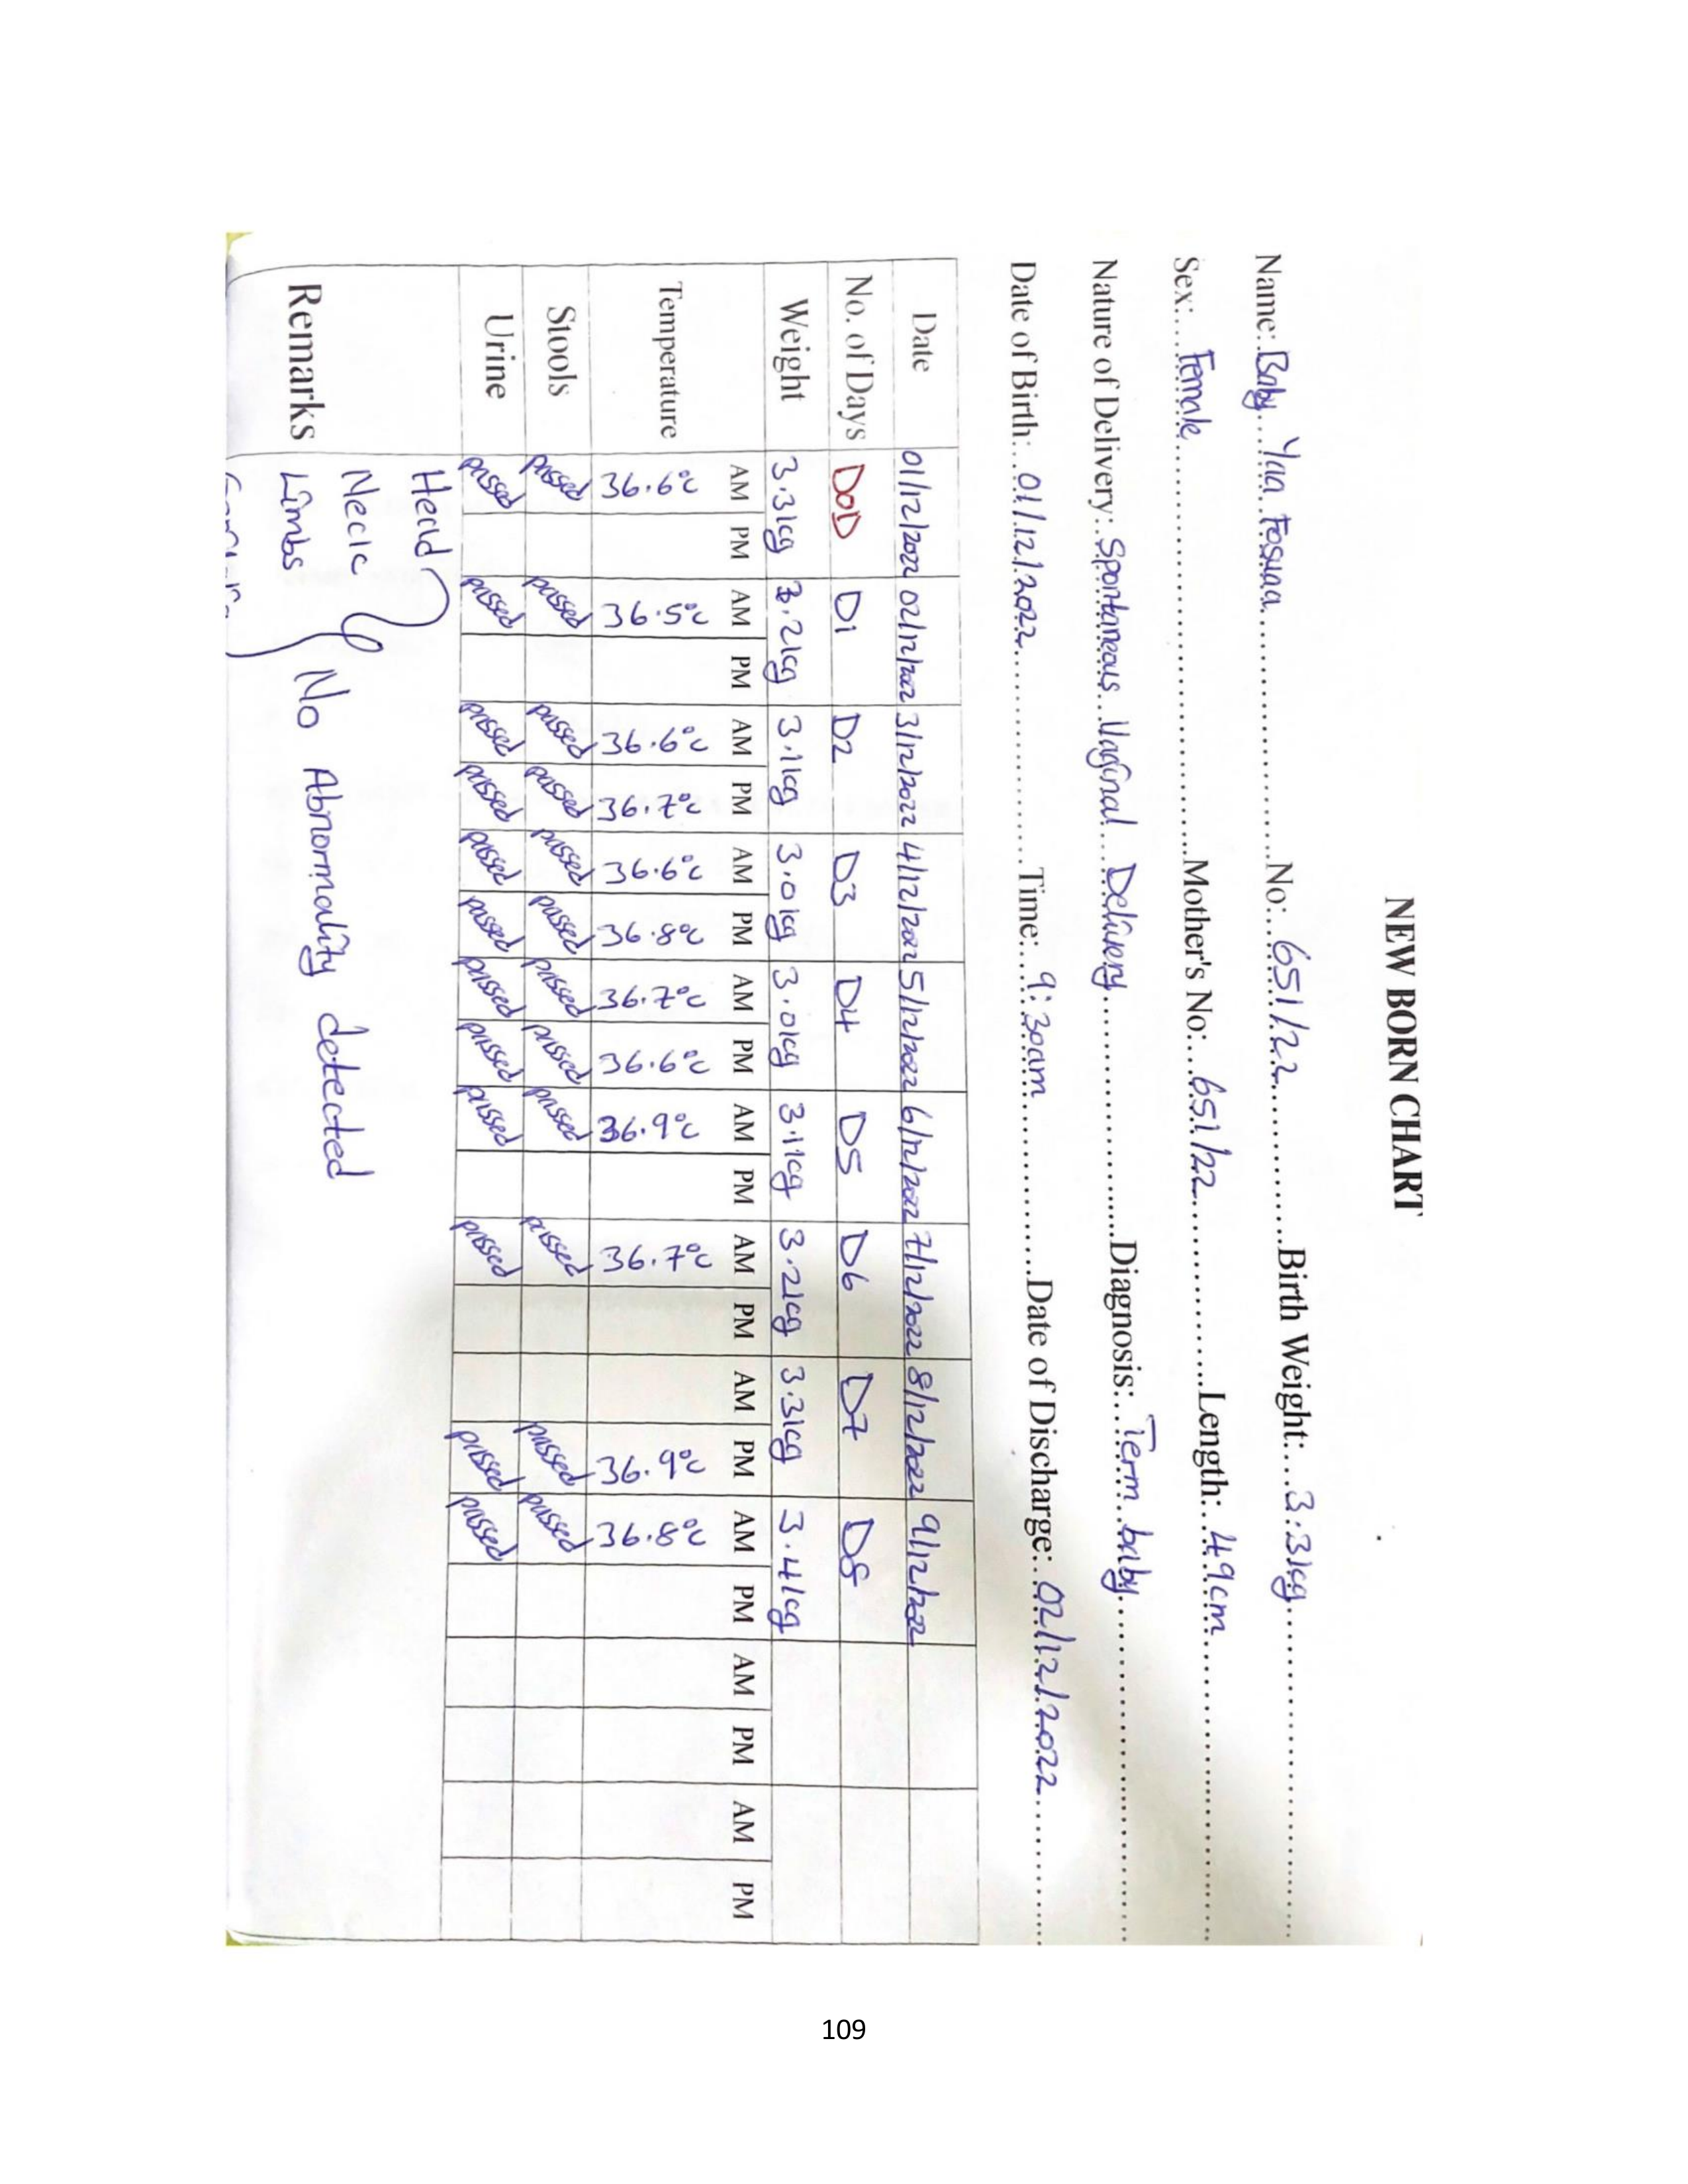 NEW BORN CHART
Name: Baby Yaa Fosuaa No: 651/22 Birth Weight: 3.3kg
Sex: Female Mother's No: 651/22 Length: 49cm
Nature of Delivery: Spontaneous Vaginal Delivery Diagnosis: Term baby
Date of Birth: 01/12/2022 Time: 9:30am Date of Discharge: 02/12/2022
Date 01/12/2022 02/12/2022 3/12/2022 4/12/2022 5/12/2022 6/12/2022 7/12/2022 8/12/2022 9/12/2022
No. of Days DOD D1 D2 D3 D4 D5 D6 D7 D8
Weight 3.3kg 3.2kg 3.1kg 3.0kg 3.0kg 3.1kg 3.2kg 3.3kg 3.4kg
AM PM AM PM AM PM AM PM AM PM AM PM AM PM AM PM AM PM AM PM AM PM
Temperature 36.6°c 36.5°c 36.6°c 36.7°c 36.6°c 36.8°c 36.7°c 36.6°c 36.9°c 36.7°c 36.9°c 36.8°c
Stools passed passed passed passed passed passed passed passed passed passed passed passed
Urine passed passed passed passed passed passed passed passed passed passed passed passed
Remarks
Head
Neck
Limbs
No Abnormality detected
109